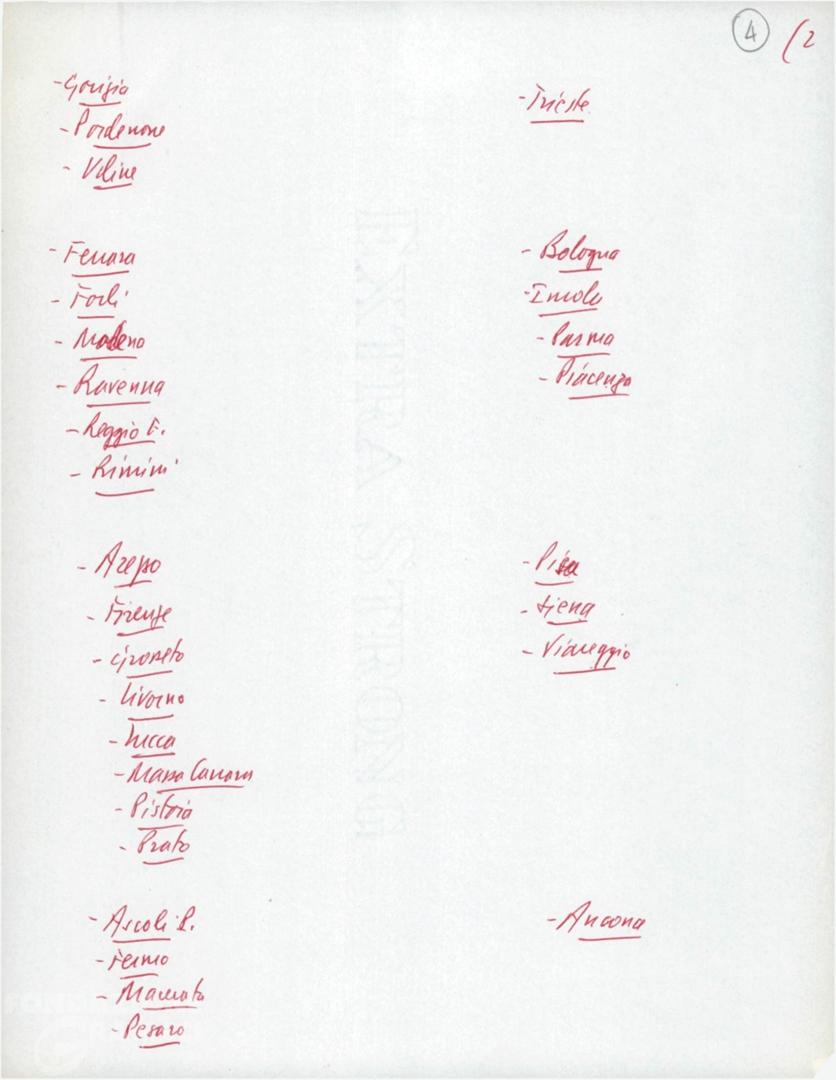 4 (2
- Gorizia
- Pordenone
- Udine
- Trieste
- Ferrara
- Forlì
- Modena
- Ravenna
- Reggio E.
- Rimini
- Bologna
- Imola
- Parma
- Piacenza
- Arezzo
- Firenze
- Grosseto
- Livorno
- Lucca
- Massa Carrara
- Pistoia
- Prato
- Pisa
- Siena
- Viareggio
- Ascoli P.
- Fermo
- Macerata
- Pesaro
- Ancona
EXTRA STRONG